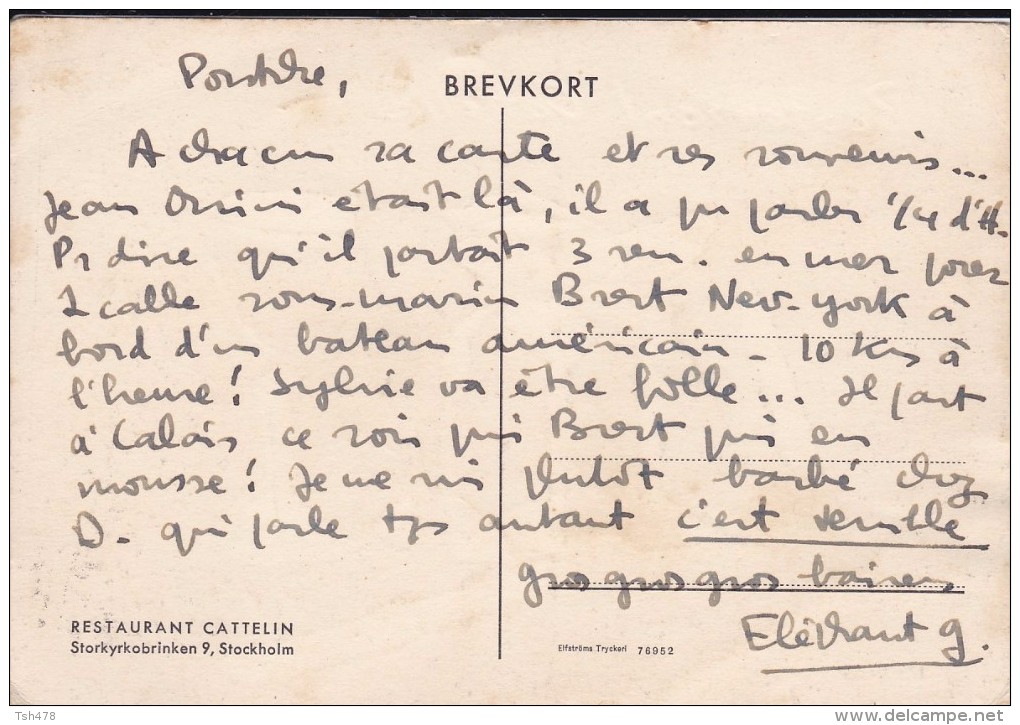 BREVKORT
A chacun sa carte et ses souvenirs...
Jean Orsini était là, il a pu parler 1/4 d'H.
Pr dire qu'il partait 3 sem. en mer poser
1 cable sous-marin Brest New-york à
bord d'un bateau américain - 10 Kms à
l'heure! Sylvie va être folle... Il part
à Calais ce soir puis Brest puis en
mousse! Je me suis plutôt barbé chez
D. qui parle tjs autant c'est terrible
gros gros gros baisers
Eléphant g.
RESTAURANT CATTELIN
Storkyrkobrinken 9, Stockholm
Elfströms Tryckeri 76952
Tsh478
www.delcampe.net